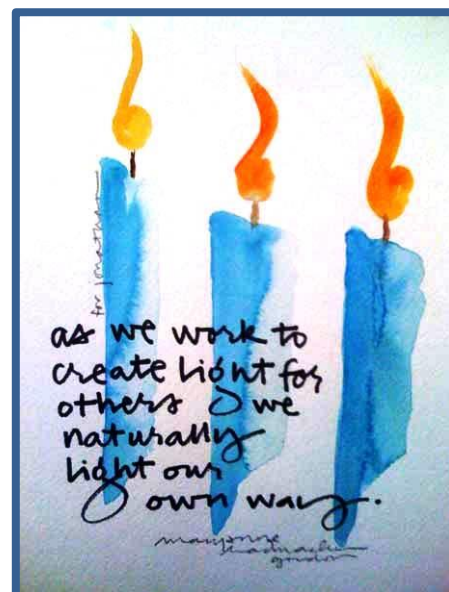 for jonathan
as we work to
create light for
others we
naturally
light our
own way.
maryanne
radmacher